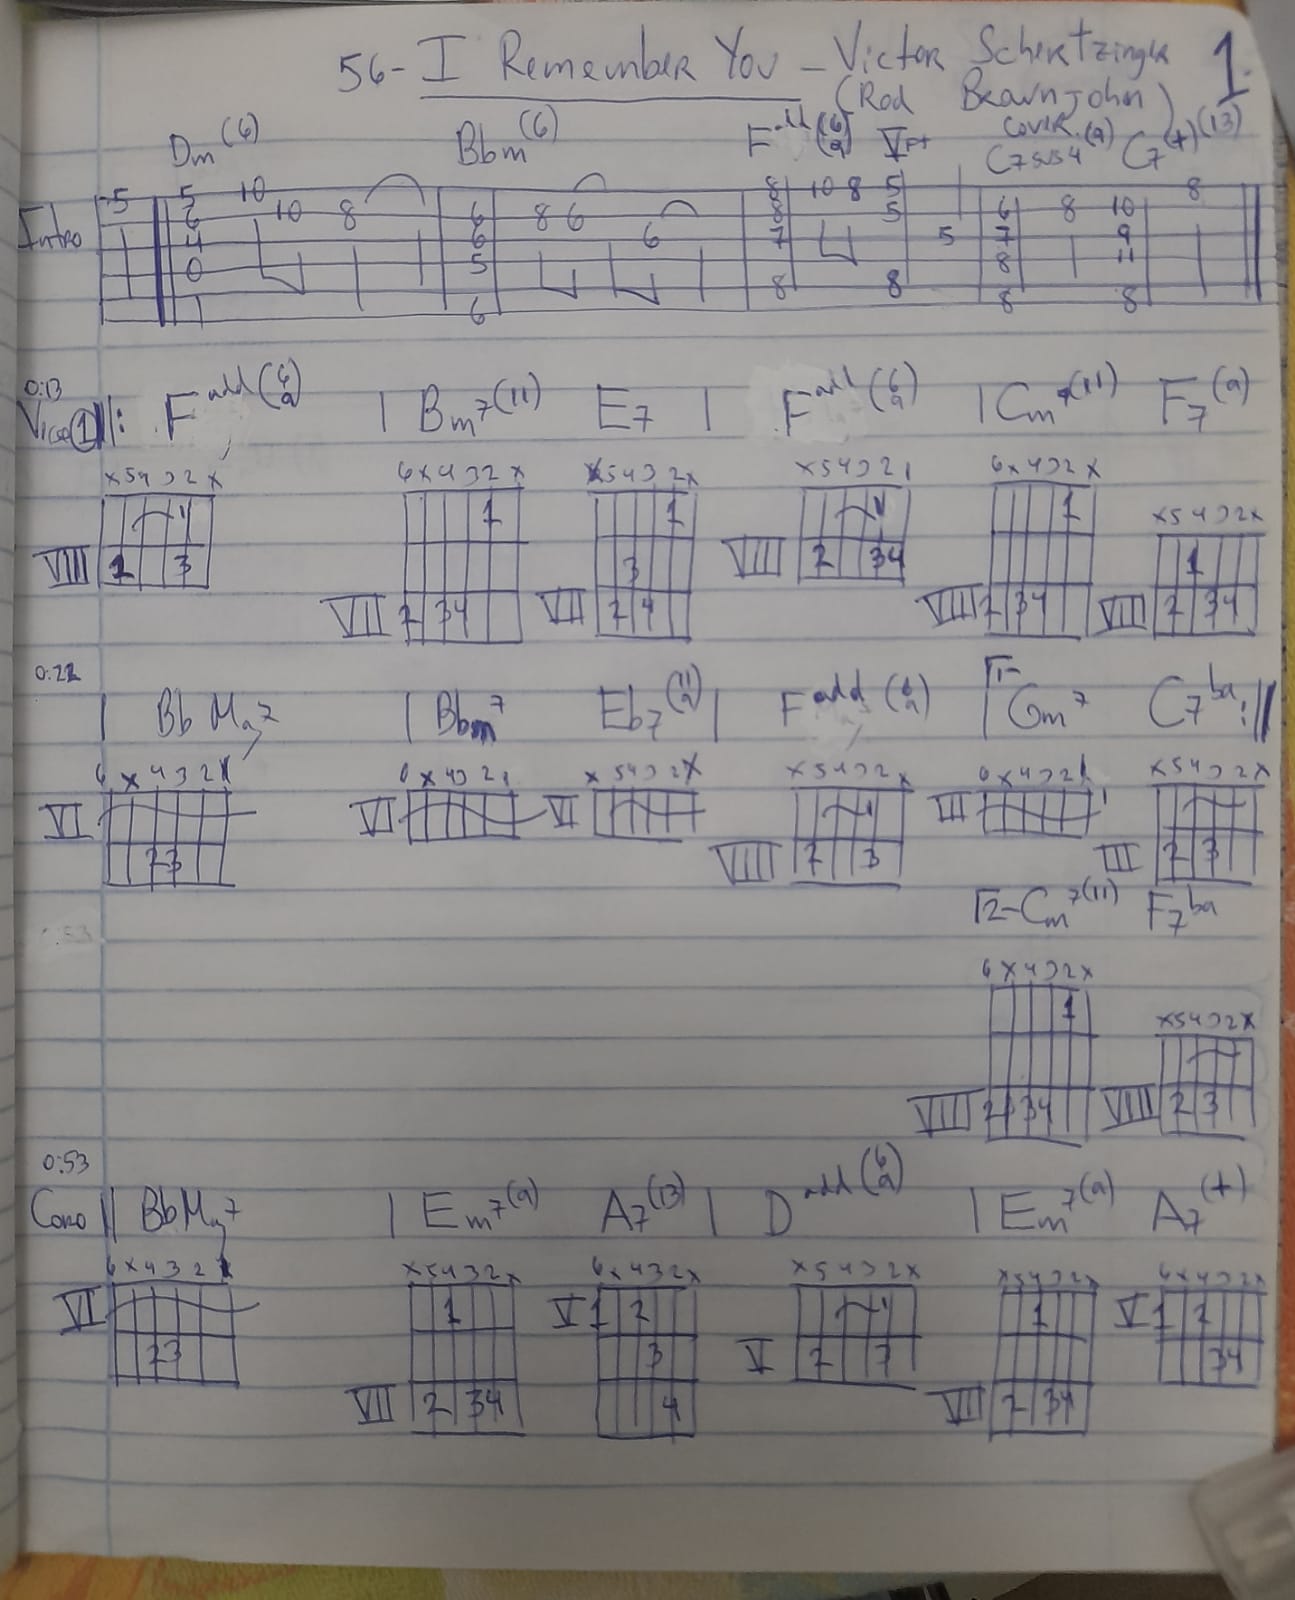 56- I Remember You - Victor Schertzinger 1.
(Rod Brawnjohn) cover.
Dm(6) Bbm(6) F add(6/9) C7sus4(9) C7(+)(13)
Intro
5 5 10 8 10 8 5 8
6 10 8 6 8 6 8 5 6 8 10
4 6 6 7 5 7 9
0 5 8 11
8 8 8 8
6
0:13
Vice① ||: F add(6/9) | Bm7(11) E7 | F add(6/9) | Cm7(11) F7(9)
x5432x 6x432x x5432x x54321 6x432x x5432x
1 1 1 1
VIII 2 3 3 VIII 2 34 1
VII 2 34 VII 2 4 VIII 2 34 VIII 2 34
0:22
| BbMaj7 | Bbm7 Eb7(11/9) | F add(6/9) |1- Gm7 C7b9 :||
6x432x 6x4321 x5432x x5432x 6x4321 x5432x
VI VI VI 1 III
23 VIII 2 3 III 2 3
2- Cm7(11) F7b9
6x432x
1 x5432x
VIII 2 34 VIII 2 3
0:53
Coro || BbMaj7 | Em7(9) A7(13) | D add(6/9) | Em7(9) A7(+)
6x432x x5432x 6x432x x5432x x5432x 6x432x
VI 1 V 1 2 1 V 1 2
23 3 V 2 3 34
VII 2 34 4 VII 2 34